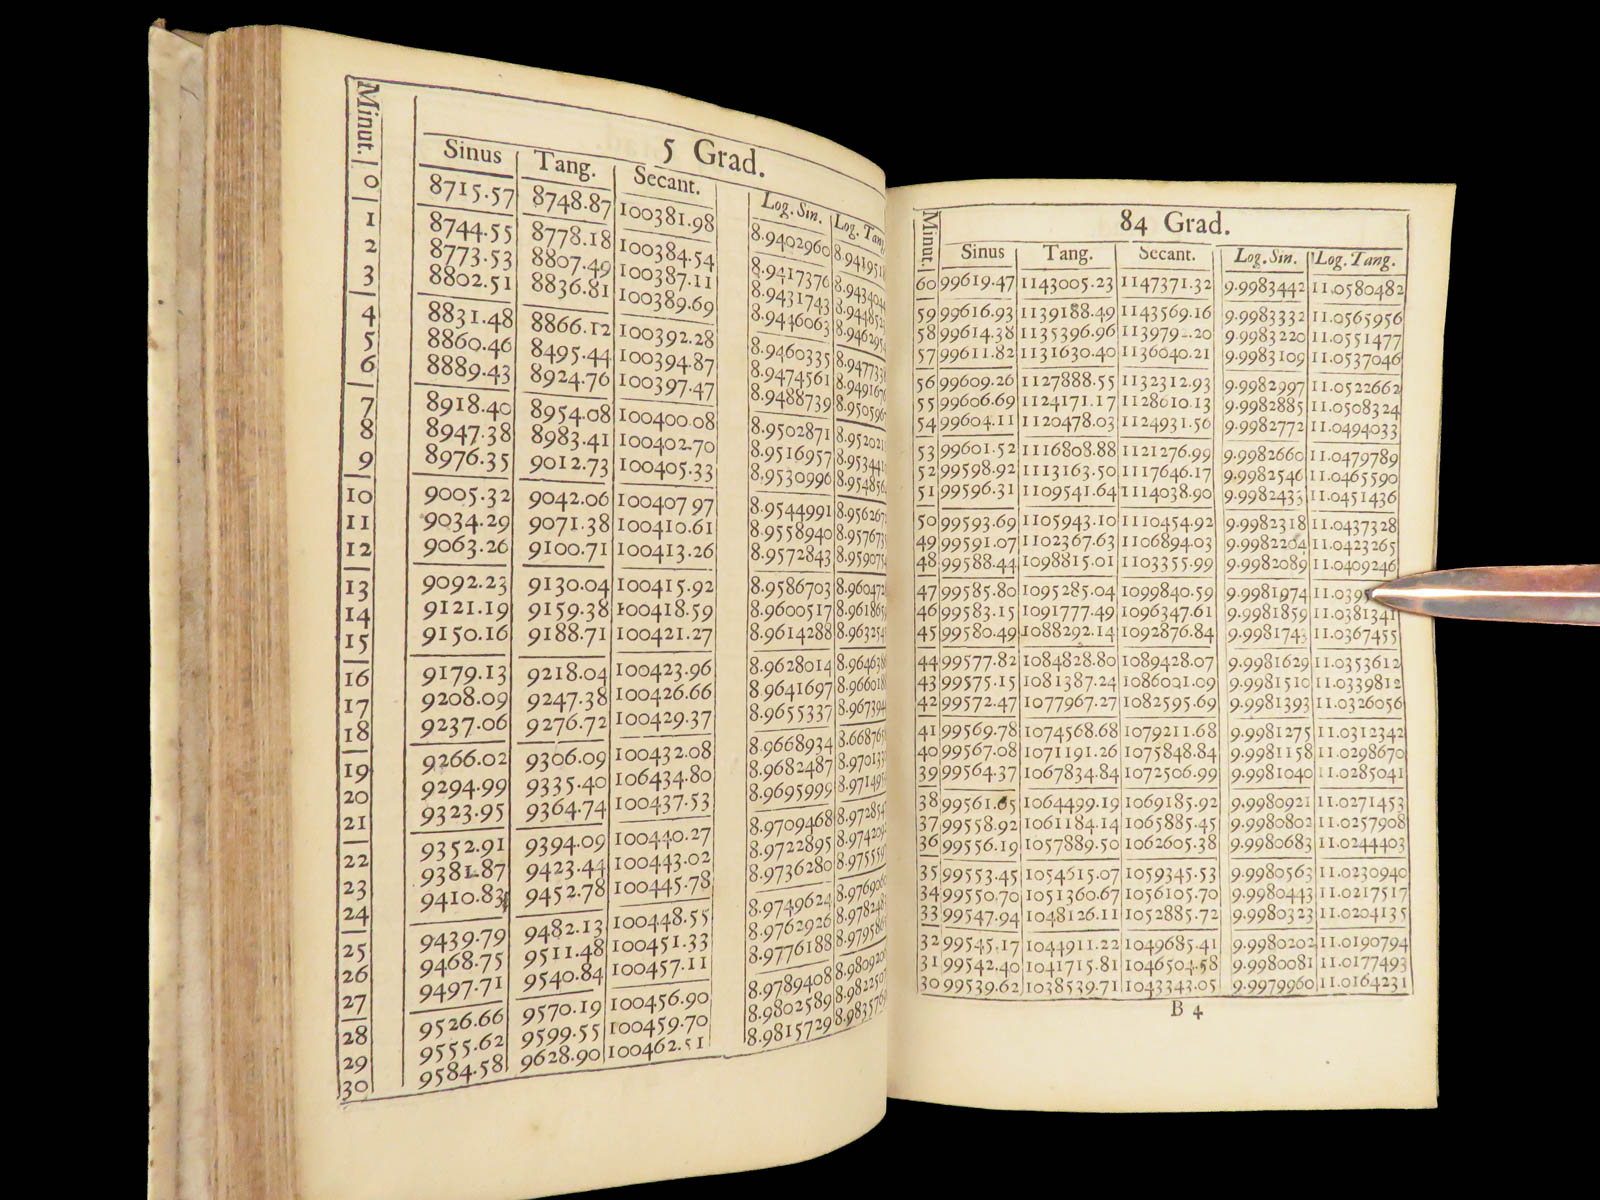 5 Grad.
Minut. Sinus Tang. Secant. Log. Sin. Log. Tan
0 8715.57 8748.87 100381.98 8.9402960 8.941951
1 8744.55 8778.18 100384.54 8.9417376 8.943404
2 8773.53 8807.49 100387.11 8.9431743 8.94485
3 8802.51 8836.81 100389.69 8.9446063 8.946295
4 8831.48 8866.12 100392.28 8.9460335 8.947733
5 8860.46 8495.44 100394.87 8.9474561 8.949167
6 8889.43 8924.76 100397.47 8.9488739 8.950596
7 8918.40 8954.08 100400.08 8.9502871 8.952021
8 8947.38 8983.41 100402.70 8.9516957 8.953441
9 8976.35 9012.73 100405.33 8.9530996 8.954856
10 9005.32 9042.06 100407 97 8.9544991 8.956267
11 9034.29 9071.38 100410.61 8.9558940 8.957673
12 9063.26 9100.71 100413.26 8.9572843 8.959075
13 9092.23 9130.04 100415.92 8.9586703 8.960472
14 9121.19 9159.38 100418.59 8.9600517 8.961865
15 9150.16 9188.71 100421.27 8.9614288 8.963254
16 9179.13 9218.04 100423.96 8.9628014 8.964638
17 9208.09 9247.38 100426.66 8.9641697 8.966018
18 9237.06 9276.72 100429.37 8.9655337 8.967394
19 9266.02 9306.09 100432.08 8.9668934 8.66876
20 9294.99 9335.40 106434.80 8.9682487 8.970133
21 9323.95 9364.74 100437.53 8.9695999 8.971495
22 9352.91 9394.09 100440.27 8.9709468 8.972854
23 9381.87 9423.44 100443.02 8.9722895 8.974209
24 9410.83 9452.78 100445.78 8.9736280 8.975559
25 9439.79 9482.13 100448.55 8.9749624 8.976906
26 9468.75 9511.48 100451.33 8.9762926 8.978248
27 9497.71 9540.84 100457.11 8.9776188 8.979586
28 9526.66 9570.19 100456.90 8.9789408 8.980920
29 9555.62 9599.55 100459.70 8.9802589 8.982250
30 9584.58 9628.90 100462.51 8.9815729 8.983576
84 Grad.
Minut. Sinus Tang. Secant. Log. Sin. Log. Tang.
60 99619.47 1143005.23 1147371.32 9.9983442 11.0580482
59 99616.93 1139188.49 1143569.16 9.9983332 11.0565956
58 99614.38 1135396.96 113979 .20 9.9983220 11.0551477
57 99611.82 1131630.40 1136040.21 9.9983109 11.0537046
56 99609.26 1127888.55 1132312.93 9.9982997 11.0522662
55 99606.69 1124171.17 1128610.13 9.9982885 11.0508324
54 99604.11 1120478.03 1124931.56 9.9982772 11.0494033
53 99601.52 1116808.88 1121276.99 9.9982660 11.0479789
52 99598.92 1113163.50 1117646.17 9.9982546 11.0465590
51 99596.31 1109541.64 1114038.90 9.9982433 11.0451436
50 99593.69 1105943.10 1110454.92 9.9982318 11.0437328
49 99591.07 1102367.63 1106894.03 9.9982204 11.0423265
48 99588.44 1098815.01 1103355.99 9.9982089 11.0409246
47 99585.80 1095285.04 1099840.59 9.9981974 11.039
46 99583.15 1091777.49 1096347.61 9.9981859 11.0381341
45 99580.49 1088292.14 1092876.84 9.9981743 11.0367455
44 99577.82 1084828.80 1089428.07 9.9981629 11.0353612
43 99575.15 1081387.24 1086001.09 9.9981510 11.0339812
42 99572.47 1077967.27 1082595.69 9.9981393 11.0326056
41 99569.78 1074568.68 1079211.68 9.9981275 11.0312342
40 99567.08 1071191.26 1075848.84 9.9981158 11.0298670
39 99564.37 1067834.84 1072506.99 9.9981040 11.0285041
38 99561.65 1064499.19 1069185.92 9.9980921 11.0271453
37 99558.92 1061184.14 1065885.45 9.9980802 11.0257908
36 99556.19 1057889.50 1062605.38 9.9980683 11.0244403
35 99553.45 1054615.07 1059345.53 9.9980563 11.0230940
34 99550.70 1051360.67 1056105.70 9.9980443 11.0217517
33 99547.94 1048126.11 1052885.72 9.9980323 11.0204135
32 99545.17 1044911.22 1049685.41 9.9980202 11.0190794
31 99542.40 1041715.81 1046504.58 9.9980081 11.0177493
30 99539.62 1038539.71 1043343.05 9.9979960 11.0164231
B 4